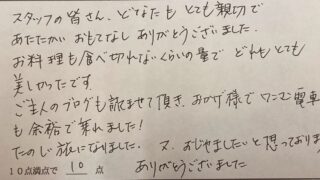 スタッフの皆さん、どなたも とても親切で
あたたかい おもてなし ありがとうございました.
お料理も食べ切れないくらいの量で どれもとても
美しかったです
ご主人のブログも読ませて頂き、おかげ様でワンマン電車
も余裕で乗れました!
たのしい旅になりました. 又、おじゃましたいと思っておりま
10点満点で 10 点 ありがとうございました